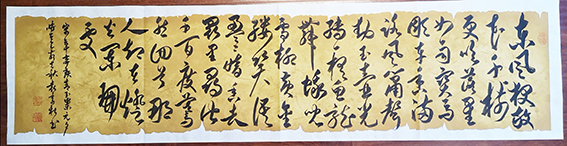 東風夜放
花千樹
更吹落星
如雨寶馬
雕車香滿
路鳳簫聲
動玉壺光
轉一夜魚龍
舞蛾兒
雪柳黃金
縷笑語
盈盈暗香去
眾里尋他
千百度驀
然回首那
人却在燈
火闌珊
處
辛棄疾青玉案元夕